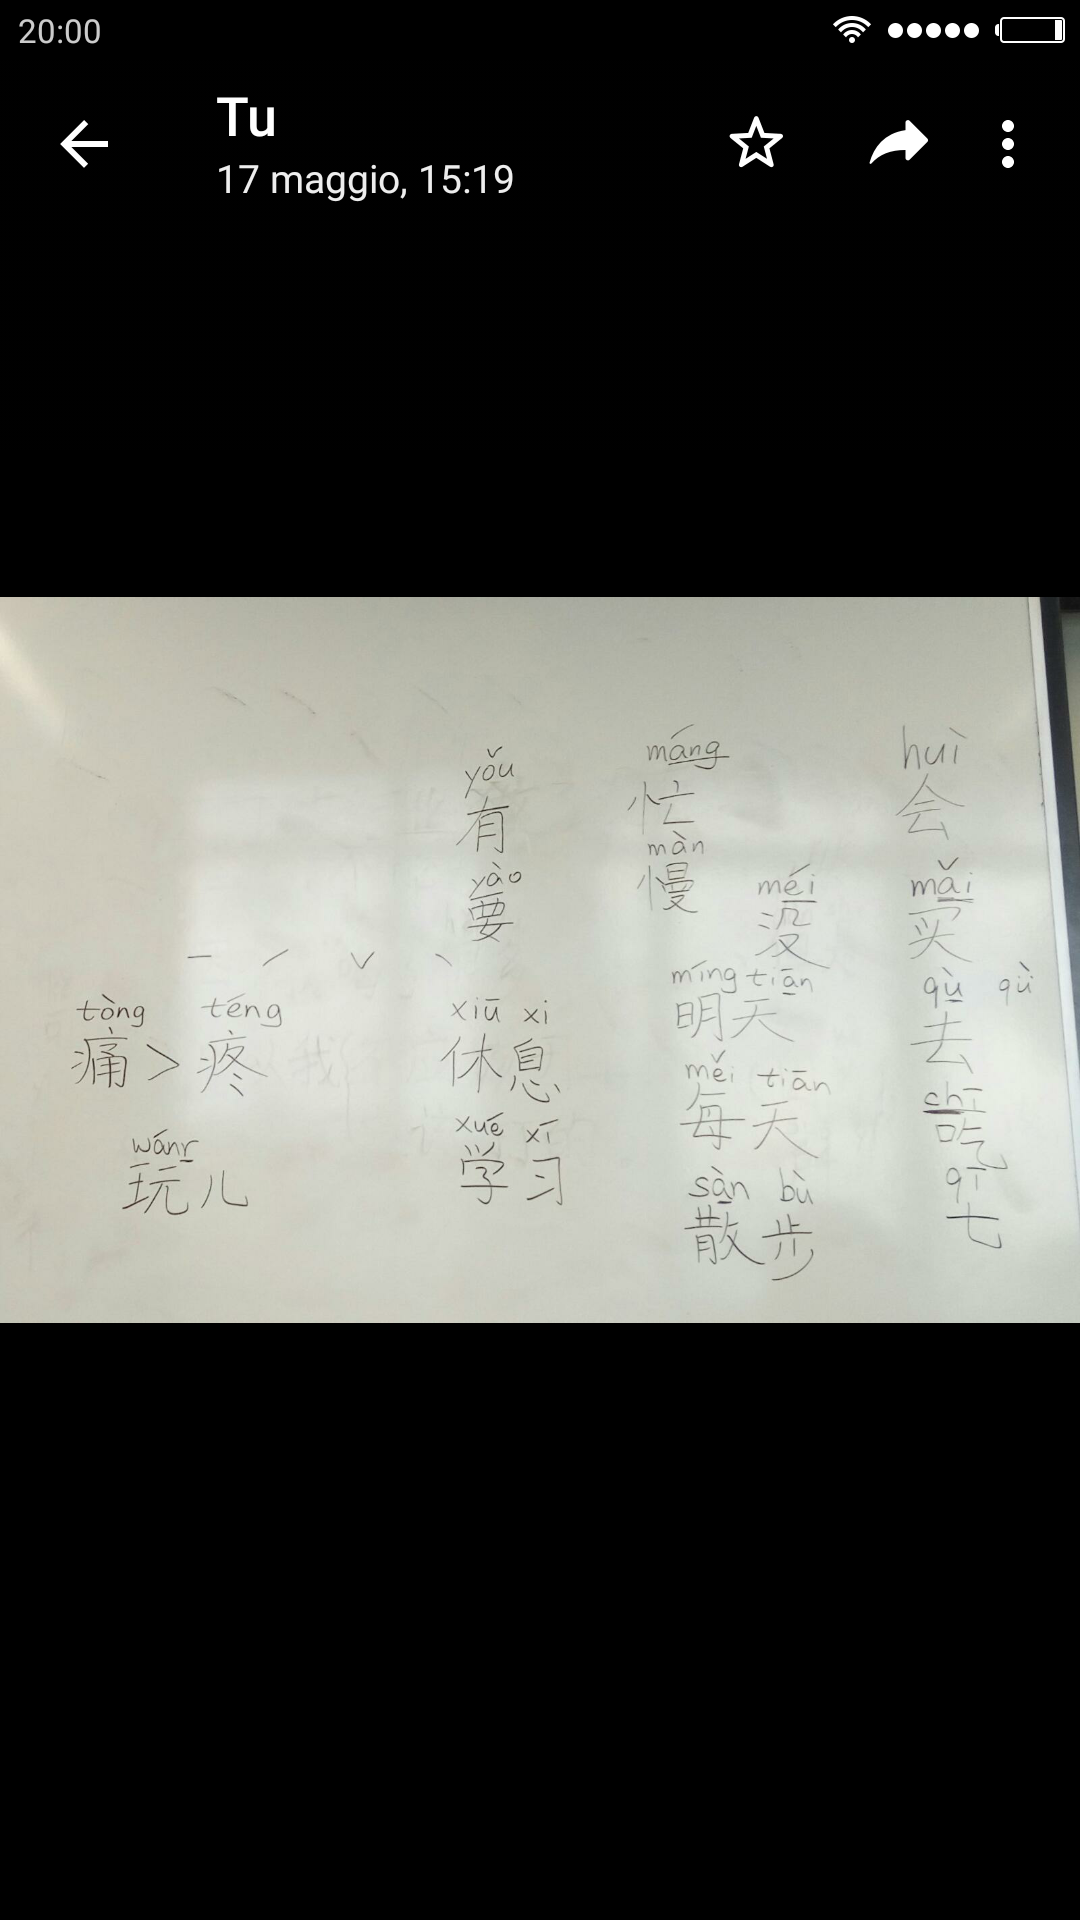 20:00
Tu
17 maggio, 15:19
tòng téng
痛 > 疼
wánr
玩儿
yǒu
有
yào
要
xiū xi
休息
xué xí
学习
máng
忙
màn
慢
méi
没
míng tiān
明天
měi tiān
每天
sàn bù
散步
huì
会
mǎi
买
qù qǜ
去
chī
吃
qī
七